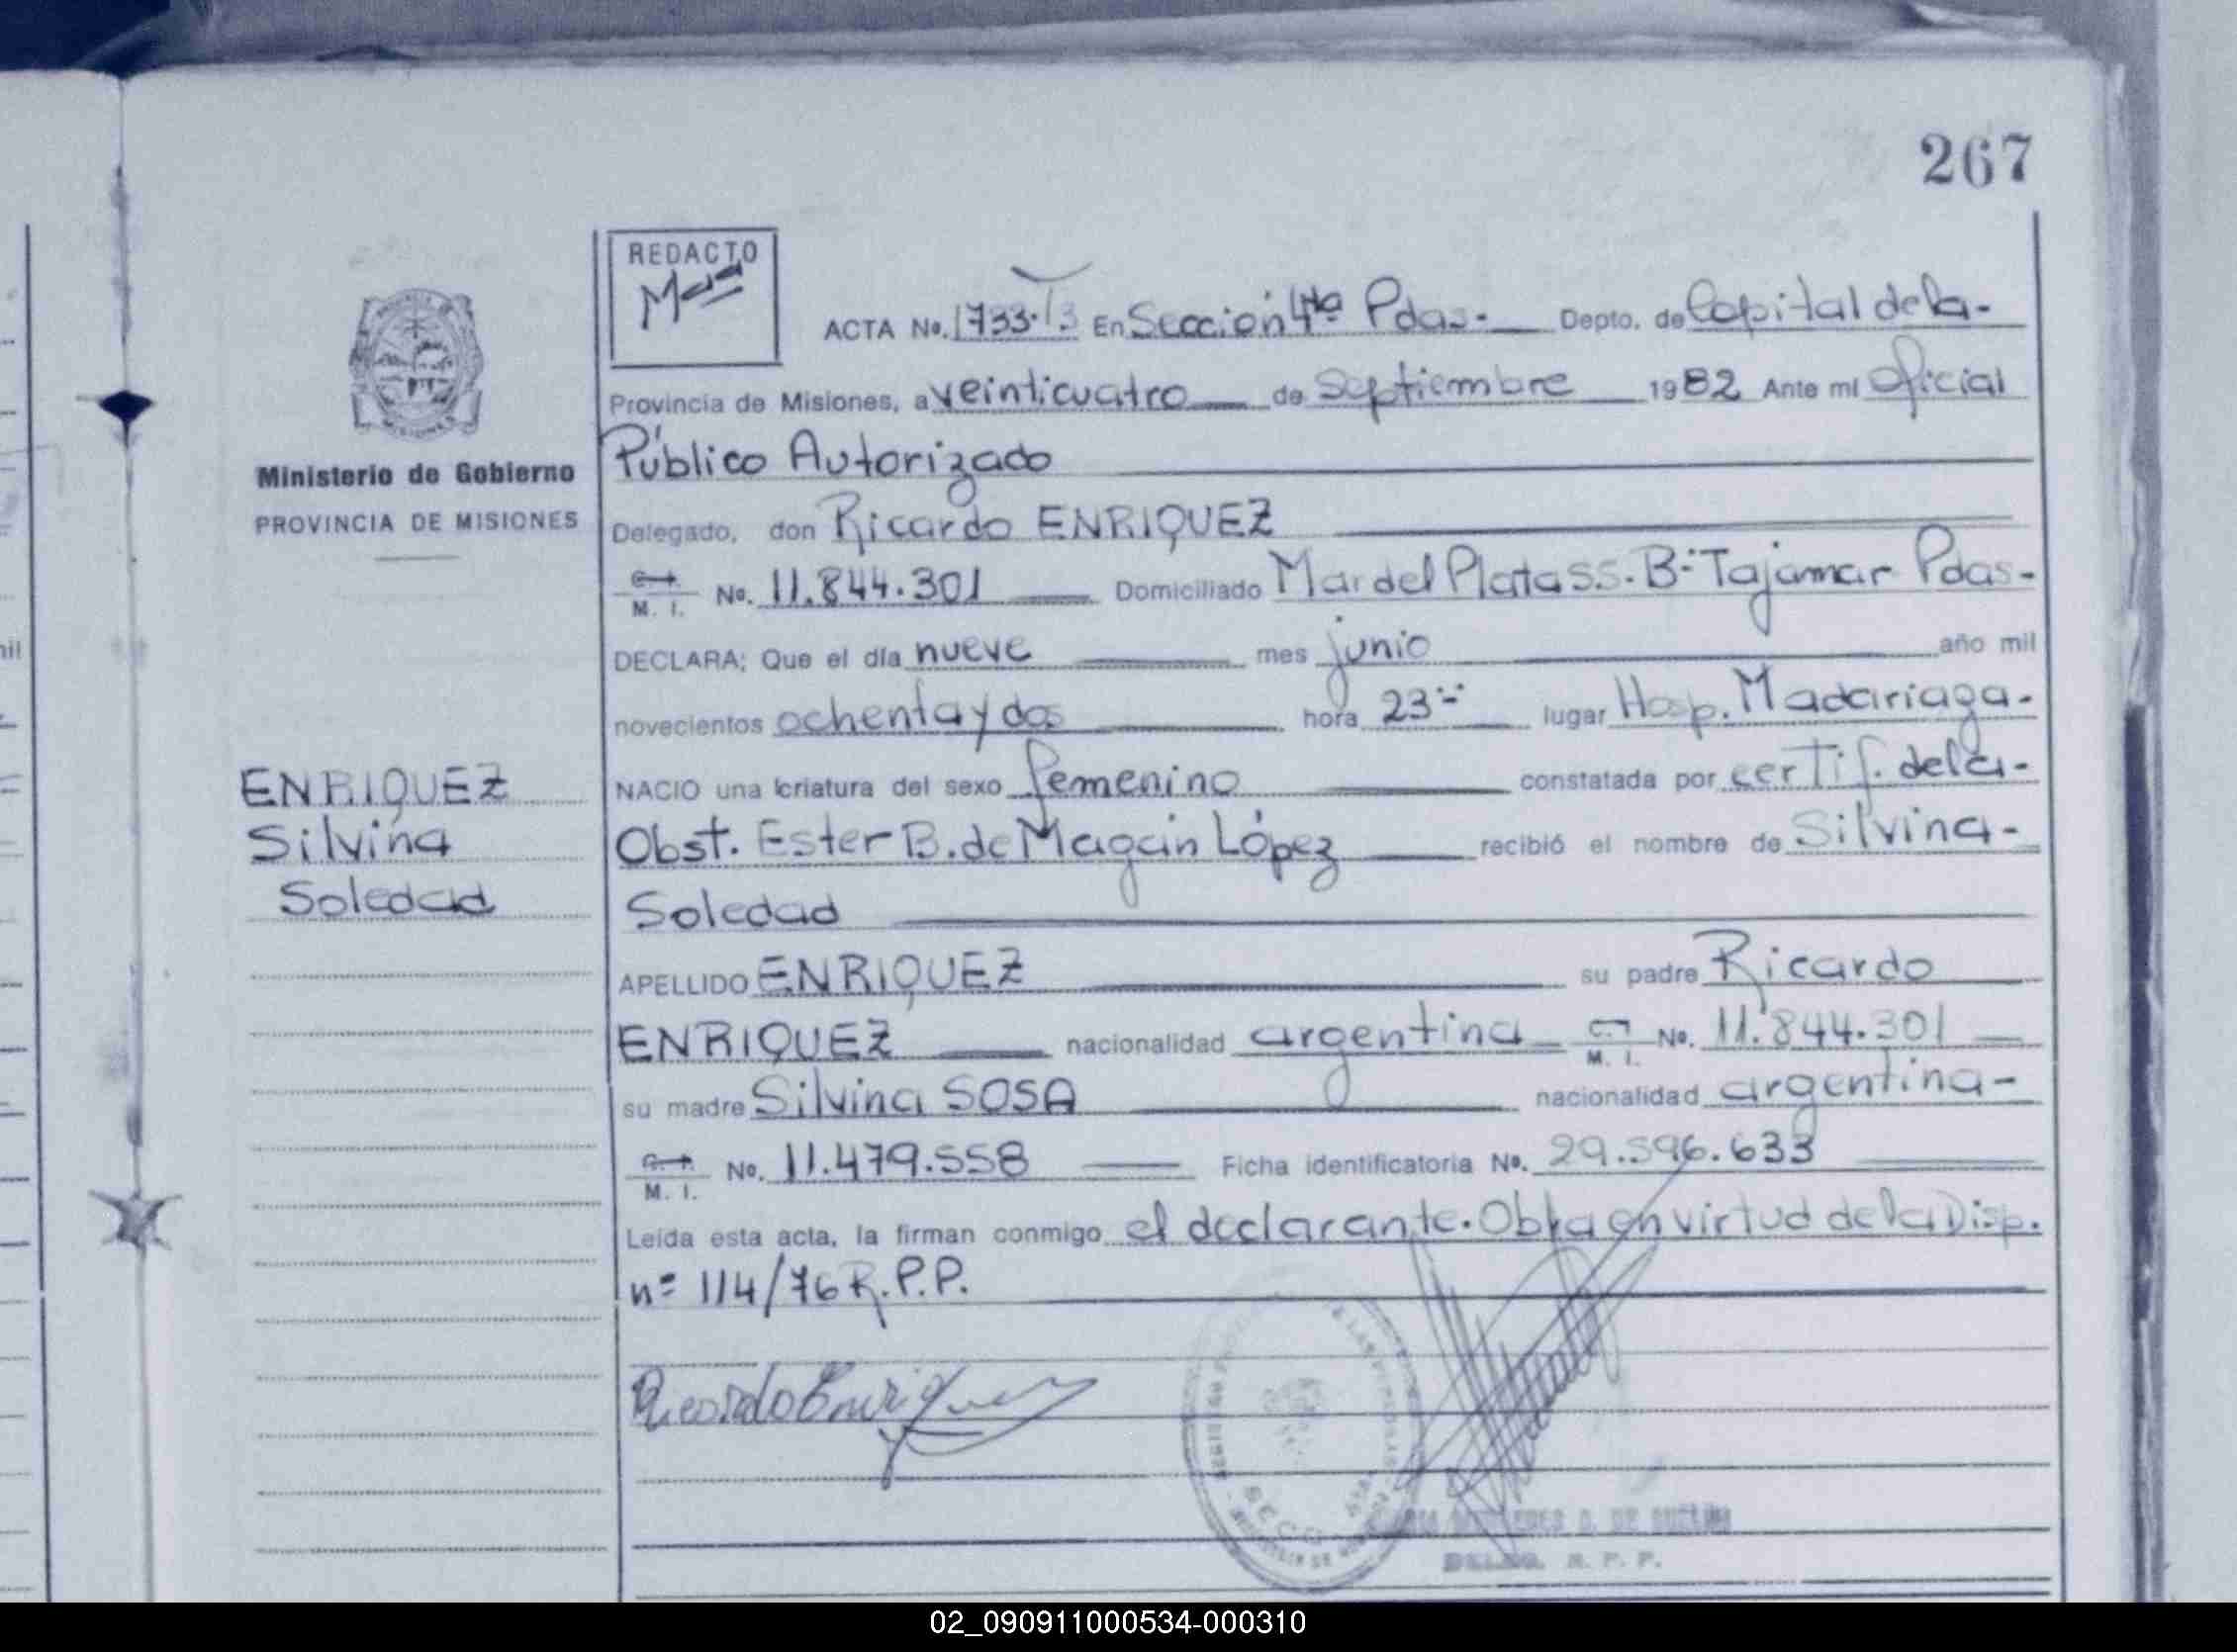 267
REDACTO
ACTA No. 1733·T3 En Sección 4ta Pdas.- Depto. de Capital de la-
Provincia de Misiones, a veinticuatro de Septiembre 1982 Ante mí Oficial
Público Autorizado
Ministerio de Gobierno
PROVINCIA DE MISIONES
Delegado, don Ricardo ENRIQUEZ
M. I. No. 11.844.301 Domiciliado Mar del Plata SS. Bº Tajamar Pdas-
DECLARA; Que el día nueve mes junio año mil
novecientos ochenta y dos hora 23 lugar Hosp. Madariaga.
ENRIQUEZ
Silvina
Soledad
NACIO una criatura del sexo femenino constatada por certif. de la-
Obst. Ester B. de Magán López recibió el nombre de Silvina-
Soledad
APELLIDO ENRIQUEZ su padre Ricardo
ENRIQUEZ nacionalidad argentina M. I. No. 11.844.301
su madre Silvina SOSA nacionalidad argentina-
M. I. No. 11.479.558 Ficha identificatoria No. 29.596.633
Leída esta acta, la firman conmigo el declarante. Obra en virtud de la Disp.
nº 114/76 R.P.P.
Ricardo Enriquez
R. P. P.
02_090911000534-000310